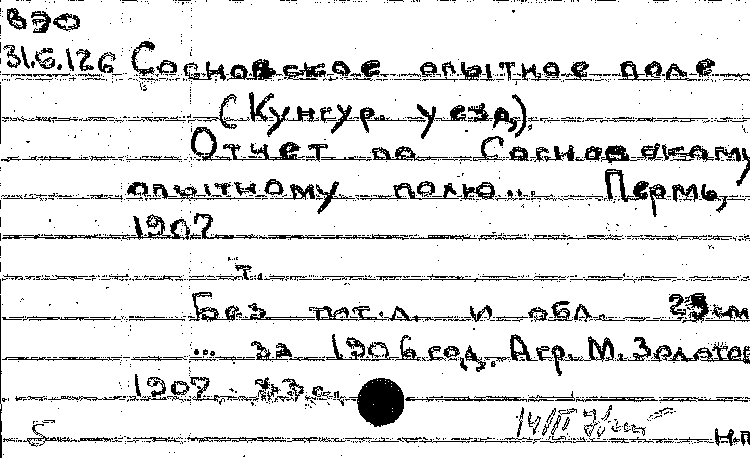 ВЭО
31.6.126 Сосновское опытное поле
(Кунгур. уезд).
Отчет по Сосновскому
опытному полю... Пермь,
1907
т.
Без тит.л. и обл. 23 см
... за 1906 год. Агр. М. Золотов
1907.
5
Н.П